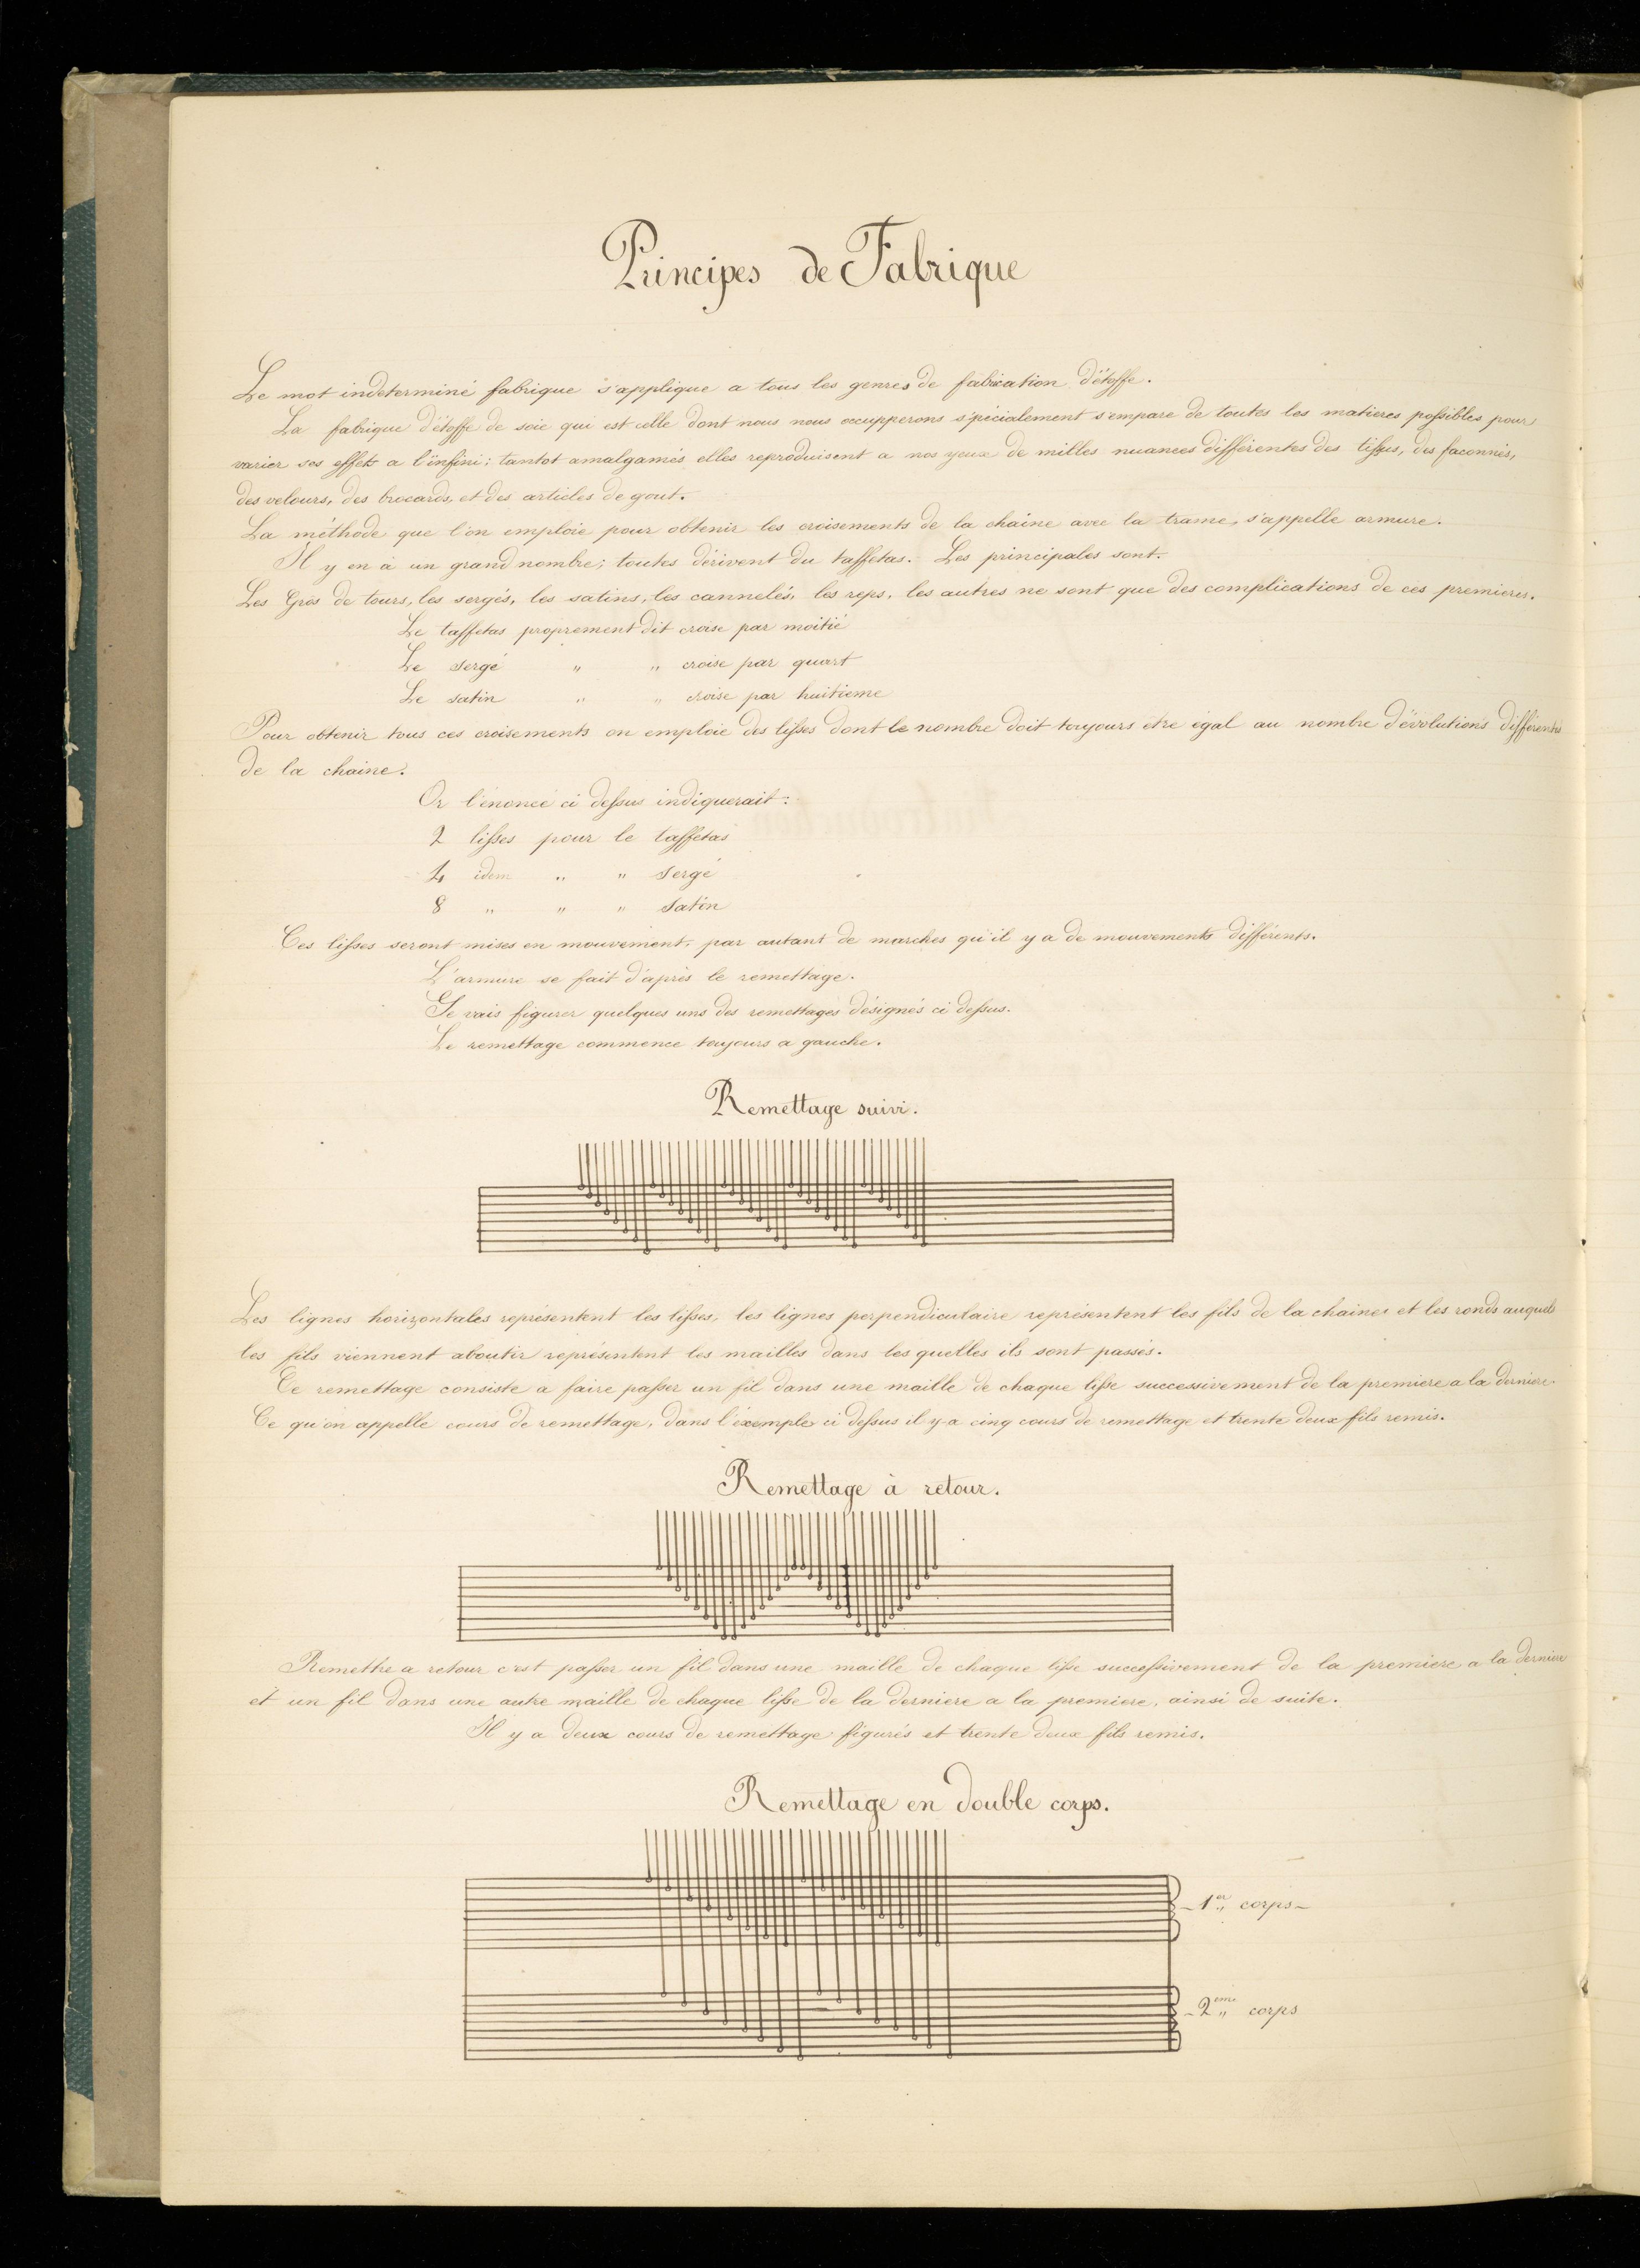 Principes de Fabrique
Le mot indeterminé fabrique s'applique a tous les genres de fabrication d'étoffe.
La fabrique d'étoffe de soie qui est celle dont nous nous occupperons spécialement s'empare de toutes les matieres possibles pour
varier ses effets a l'infini; tantot amalgamés elles reproduisent a nos yeux de milles nuances différentes des tissus, des faconnés,
des velours, des brocards, et des articles de gout.
La méthode que l'on emploie pour obtenir les croisements de la chaine avec la trame, s'appelle armure.
Il y en a un grand nombre; toutes dérivent du taffetas. Les principales sont.
Les Gros de tours, les sergés, les satins, les cannelés, les reps, les autres ne sont que des complications de ces premieres.
Le taffetas proprement dit croise par moitié
Le sergé " " croise par quart
Le satin " " croise par huitieme
Pour obtenir tous ces croisements on emploie des lisses dont le nombre doit toujours etre égal au nombre d'évolutions différentes
de la chaine.
Or l'énoncé ci dessus indiquerait:
2 lisses pour le taffetas
4 idem " " sergé
8 " " " satin
Ces lisses seront mises en mouvement, par autant de marches qu'il y a de mouvements différents.
L'armure se fait d'après le remettage.
Je vais figurer quelques uns des remettages désignés ci dessus.
Le remettage commence toujours a gauche.
Remettage suivi.
Les lignes horizontales représentent les lisses, les lignes perpendiculaire représentent les fils de la chaines et les ronds auquels
les fils viennent aboutir représentent les mailles dans les quelles ils sont passés.
Ce remettage consiste a faire passer un fil dans une maille de chaque lisse successivement de la premiere a la derniere.
Ce qu'on appelle cours de remettage, dans l'éxemple ci dessus il y a cinq cours de remettage et trente deux fils remis.
Remettage à retour.
Remettre a retour c'est passer un fil dans une maille de chaque lisse successivement de la premiere a la derniere
et un fil dans une autre maille de chaque lisse de la derniere a la premiere, ainsi de suite.
Il y a deux cours de remettage figurés et trente deux fils remis.
Remettage en double corps.
1er corps
2eme corps